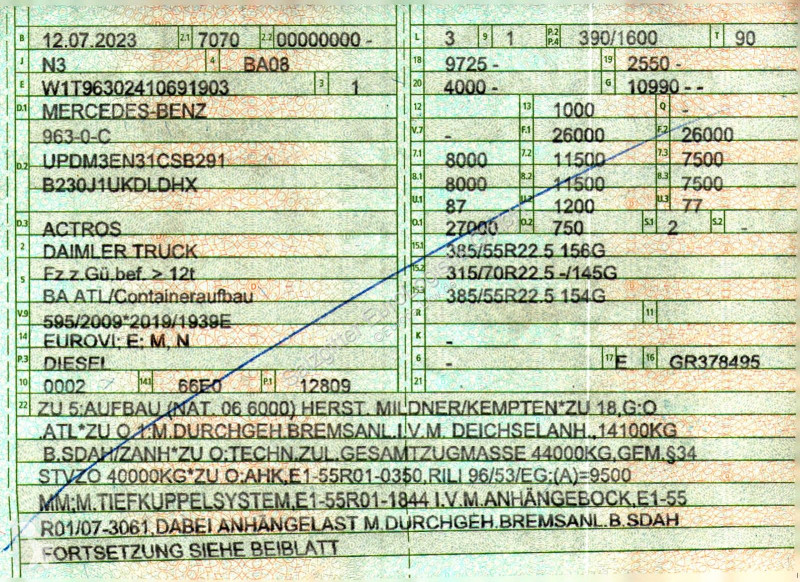 B 12.07.2023 2.1 7070 2.2 00000000 - L 3 9 1 P.2 P.4 390/1600 T 90
J N3 4 BA08 18 9725 - 19 2550 -
E W1T96302410691903 3 1 20 4000 - G 10990 - -
D.1 MERCEDES-BENZ 12 13 1000 Q -
963-0-C V.7 - F.1 26000 F.2 26000
D.2 UPDM3EN31CSB291 7.1 8000 7.2 11500 7.3 7500
B230J1UKDLDHX 8.1 8000 8.2 11500 8.3 7500
U.1 87 U.2 1200 U.3 77
D.3 ACTROS O.1 27000 O.2 750 S.1 2 S.2 -
2 DAIMLER TRUCK 15.1 385/55R22.5 156G
5 Fz.z.Gü.bef. > 12t 15.2 315/70R22.5 -/145G
BA ATL/Containeraufbau 15.3 385/55R22.5 154G
V.9 595/2009*2019/1939E R - 11
14 EUROVI; E; M, N K -
P.3 DIESEL 6 - 17 E 16 GR378495
10 0002 14.1 66E0 P.1 12809 21
22 ZU 5:AUFBAU (NAT. 06 6000) HERST. MILDNER/KEMPTEN*ZU 18,G:O
.ATL*ZU O.1:M.DURCHGEH.BREMSANL.I.V.M. DEICHSELANH.,14100KG
B.SDAH/ZANH*ZU O:TECHN.ZUL.GESAMTZUGMASSE 44000KG,GEM.§34
STVZO 40000KG*ZU O:AHK,E1-55R01-0350,RILI 96/53/EG;(A)=9500
MM;M.TIEFKUPPELSYSTEM,E1-55R01-1844 I.V.M.ANHÄNGEBOCK,E1-55
R01/07-3061,DABEI ANHÄNGELAST M.DURCHGEH.BREMSANL.B.SDAH
FORTSETZUNG SIEHE BEIBLATT